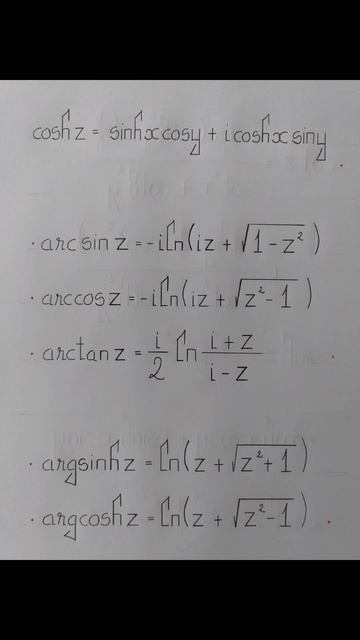 cosh z = sinh x cos y + i cosh x sin y .
· arc sin z = -i Ln(iz + √(1 - z²))
· arccos z = -i Ln(iz + √(z² - 1))
· arctan z = i/2 Ln (i + z)/(i - z)
· argsinh z = Ln(z + √(z² + 1))
· argcosh z = Ln(z + √(z² - 1)) .